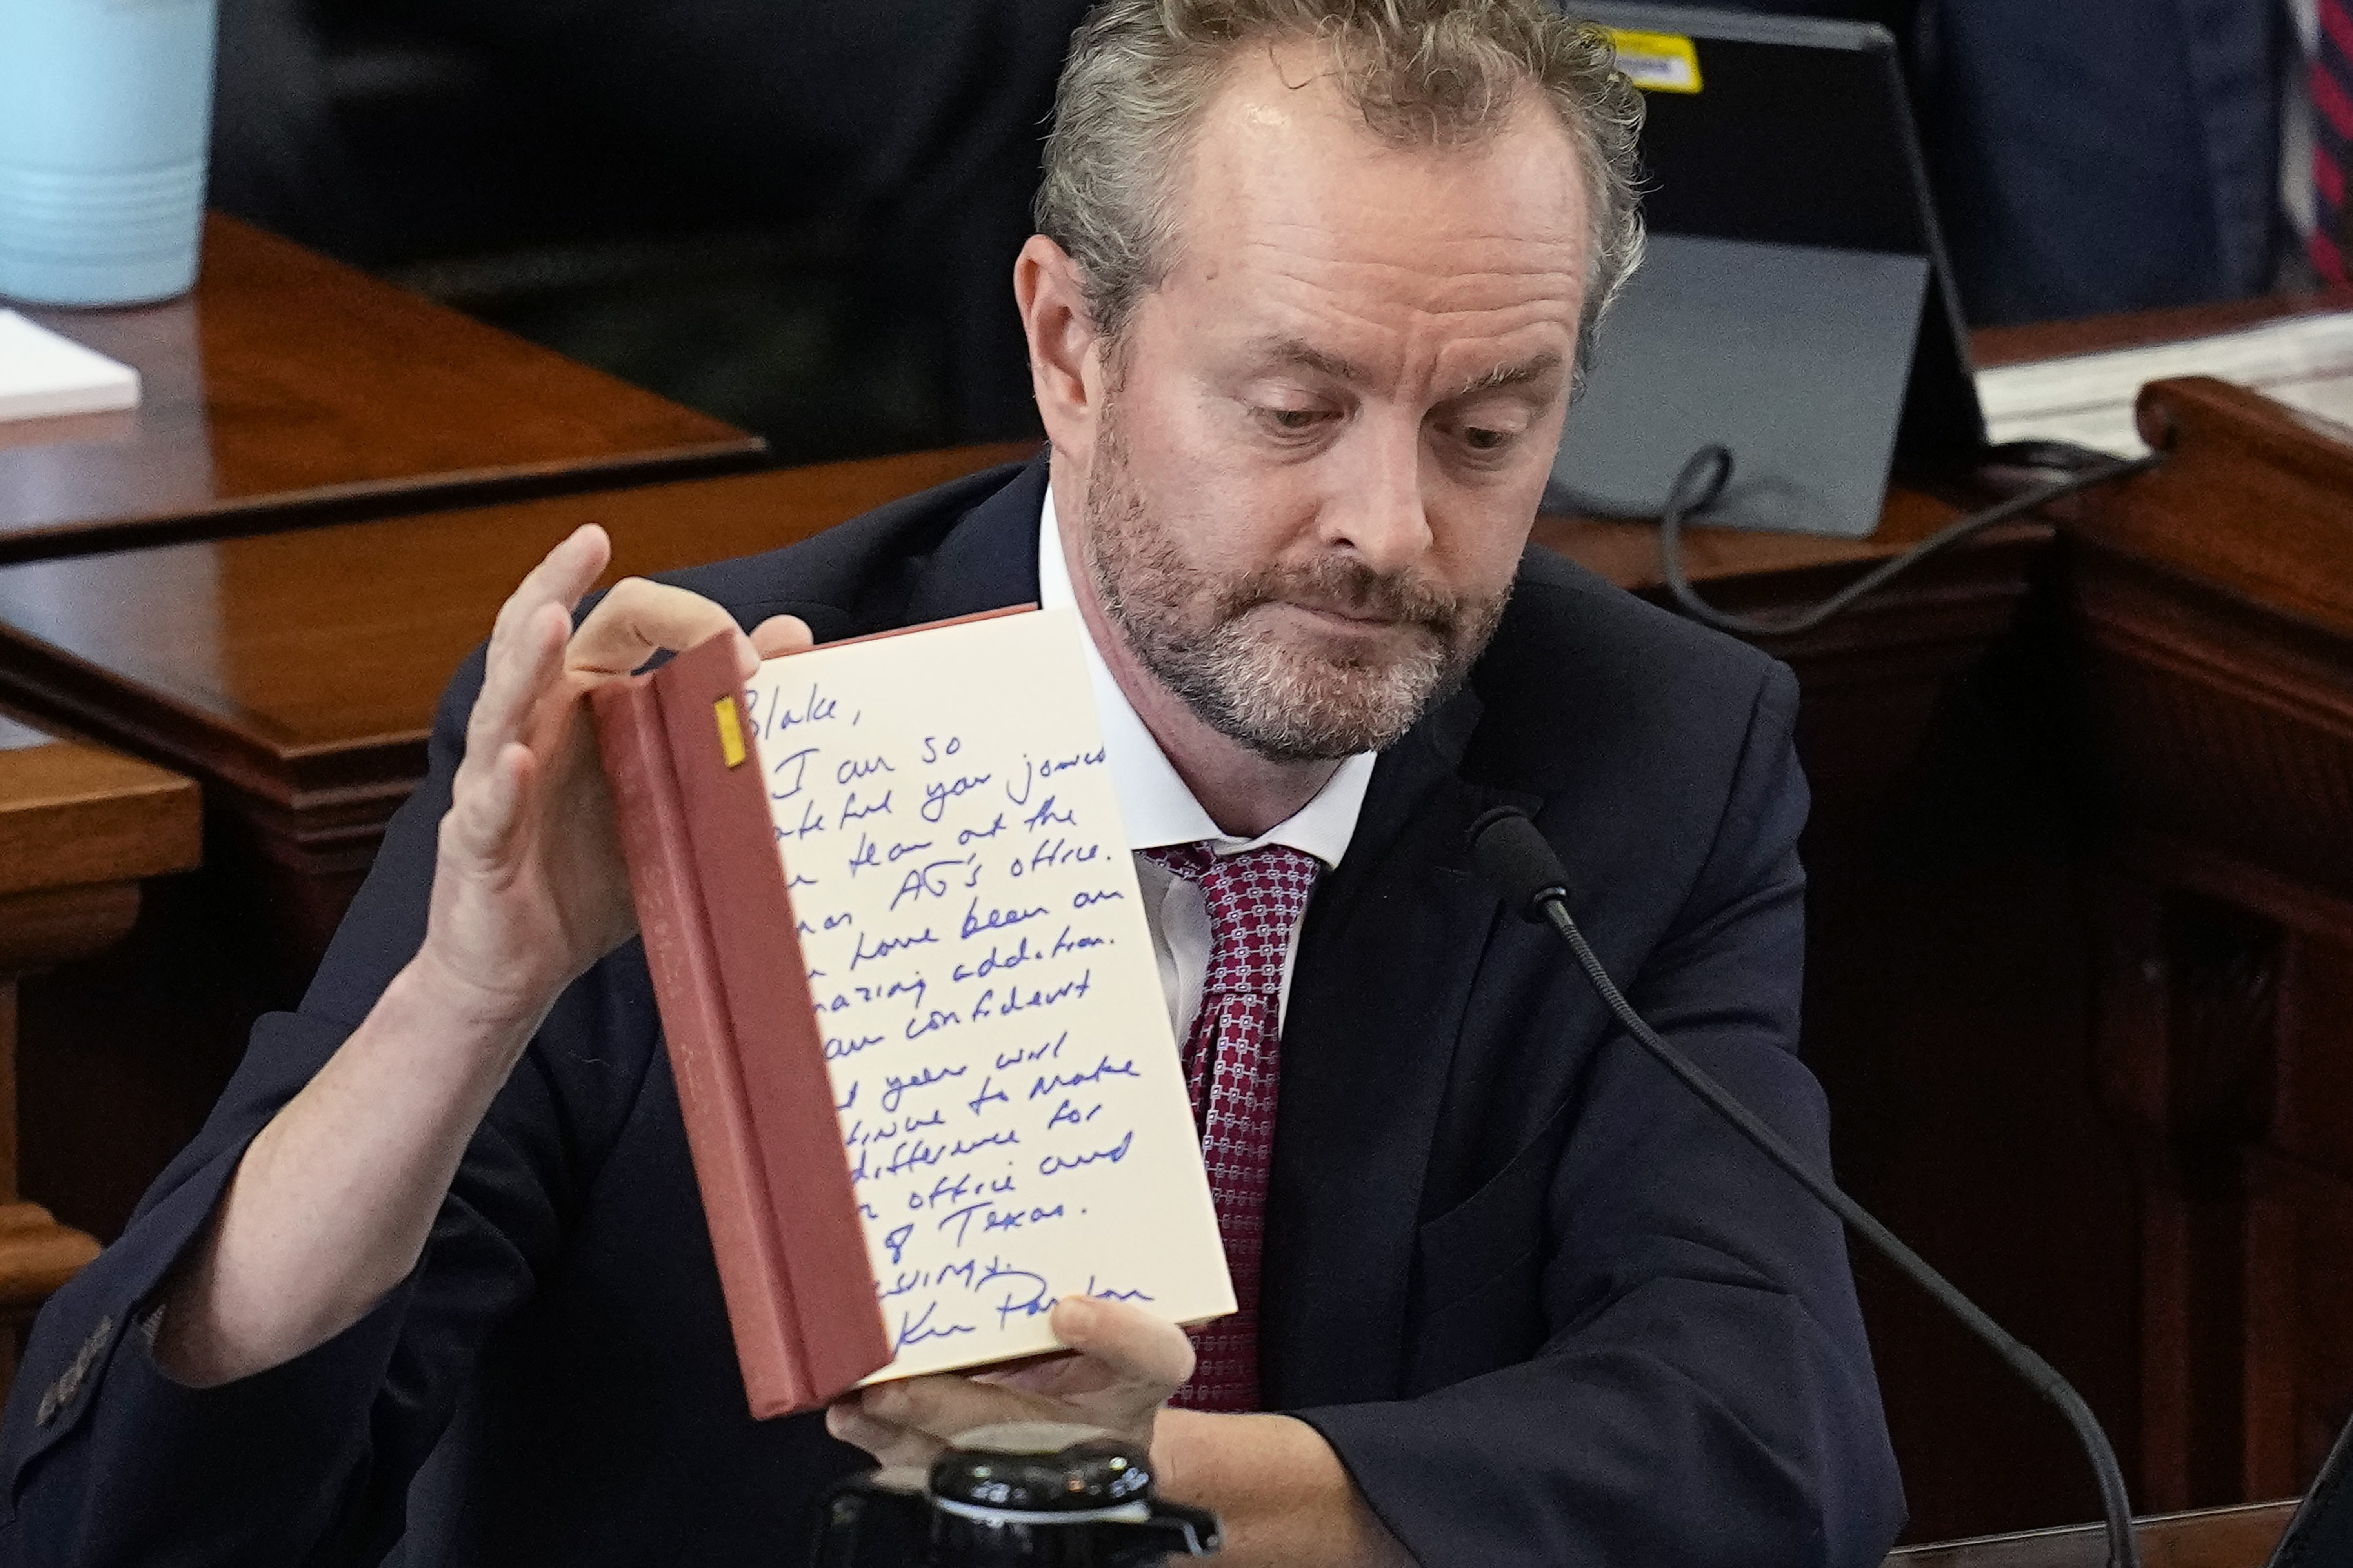 Blake,
I am so
ateful you joined
team at the
AG's office.
have been an
mazing addition.
am confident
you will
tinue to make
difference for
office and
of Texas.
Ken Paxton